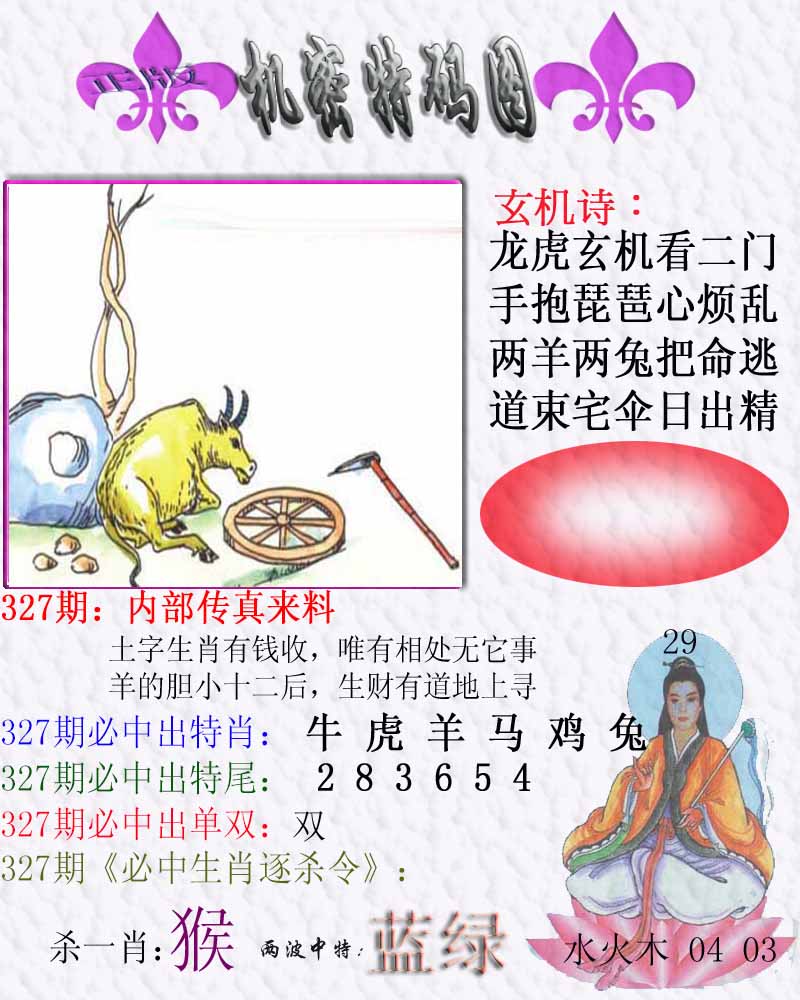 正版
机密特码图
玄机诗：
龙虎玄机看二门
手抱琵琶心烦乱
两羊两兔把命逃
道束宅伞日出精
327期：内部传真来料
土字生肖有钱收，唯有相处无它事
羊的胆小十二后，生财有道地上寻
29
327期必中出特肖： 牛 虎 羊 马 鸡 兔
327期必中出特尾： 2 8 3 6 5 4
327期必中出单双：双
327期《必中生肖逐杀令》：
杀一肖：猴 两波中特：蓝绿 水火木 04 03